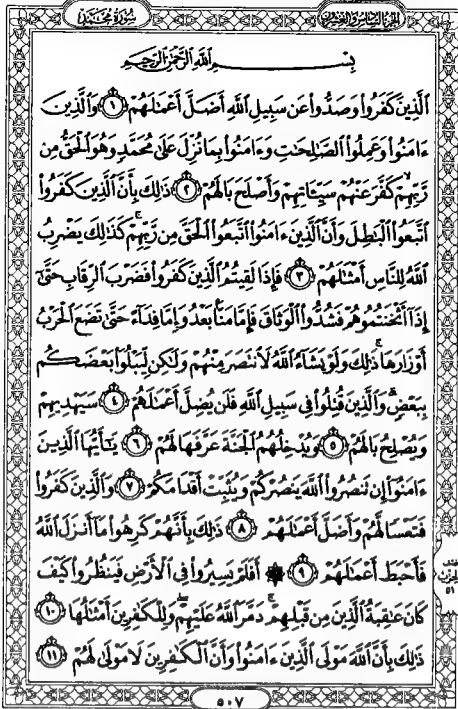 سُورَةُ مُحَمَّد
الجُزْءُ السَّادِسُ وَالعِشْرُونَ
بِسْمِ اللَّهِ الرَّحْمَٰنِ الرَّحِيمِ
الَّذِينَ كَفَرُوا وَصَدُّوا عَن سَبِيلِ اللَّهِ أَضَلَّ أَعْمَٰلَهُمْ ١ وَالَّذِينَ
ءَامَنُوا وَعَمِلُوا الصَّٰلِحَٰتِ وَءَامَنُوا بِمَا نُزِّلَ عَلَىٰ مُحَمَّدٍ وَهُوَ الْحَقُّ مِن
رَّبِّهِمْ كَفَّرَ عَنْهُمْ سَيِّـَٔاتِهِمْ وَأَصْلَحَ بَالَهُمْ ٢ ذَٰلِكَ بِأَنَّ الَّذِينَ كَفَرُوا
اتَّبَعُوا الْبَٰطِلَ وَأَنَّ الَّذِينَ ءَامَنُوا اتَّبَعُوا الْحَقَّ مِن رَّبِّهِمْ كَذَٰلِكَ يَضْرِبُ
اللَّهُ لِلنَّاسِ أَمْثَٰلَهُمْ ٣ فَإِذَا لَقِيتُمُ الَّذِينَ كَفَرُوا فَضَرْبَ الرِّقَابِ حَتَّىٰٓ
إِذَآ أَثْخَنتُمُوهُمْ فَشُدُّوا الْوَثَاقَ فَإِمَّا مَنًّۢا بَعْدُ وَإِمَّا فِدَآءً حَتَّىٰ تَضَعَ الْحَرْبُ
أَوْزَارَهَا ذَٰلِكَ وَلَوْ يَشَآءُ اللَّهُ لَٱنتَصَرَ مِنْهُمْ وَلَٰكِن لِّيَبْلُوَا بَعْضَكُم
بِبَعْضٍ وَالَّذِينَ قُتِلُوا فِي سَبِيلِ اللَّهِ فَلَن يُضِلَّ أَعْمَٰلَهُمْ ٤ سَيَهْدِيهِمْ
وَيُصْلِحُ بَالَهُمْ ٥ وَيُدْخِلُهُمُ الْجَنَّةَ عَرَّفَهَا لَهُمْ ٦ يَٰٓأَيُّهَا الَّذِينَ
ءَامَنُوٓا إِن تَنصُرُوا اللَّهَ يَنصُرْكُمْ وَيُثَبِّتْ أَقْدَامَكُمْ ٧ وَالَّذِينَ كَفَرُوا
فَتَعْسًا لَّهُمْ وَأَضَلَّ أَعْمَٰلَهُمْ ٨ ذَٰلِكَ بِأَنَّهُمْ كَرِهُوا مَآ أَنزَلَ اللَّهُ
فَأَحْبَطَ أَعْمَٰلَهُمْ ٩ ۞ أَفَلَمْ يَسِيرُوا فِي الْأَرْضِ فَيَنظُرُوا كَيْفَ
كَانَ عَٰقِبَةُ الَّذِينَ مِن قَبْلِهِمْ دَمَّرَ اللَّهُ عَلَيْهِمْ وَلِلْكَٰفِرِينَ أَمْثَٰلُهَا ١٠
ذَٰلِكَ بِأَنَّ اللَّهَ مَوْلَى الَّذِينَ ءَامَنُوا وَأَنَّ الْكَٰفِرِينَ لَا مَوْلَىٰ لَهُمْ ١١
نصف
الحزب
٥١
٥٠٧